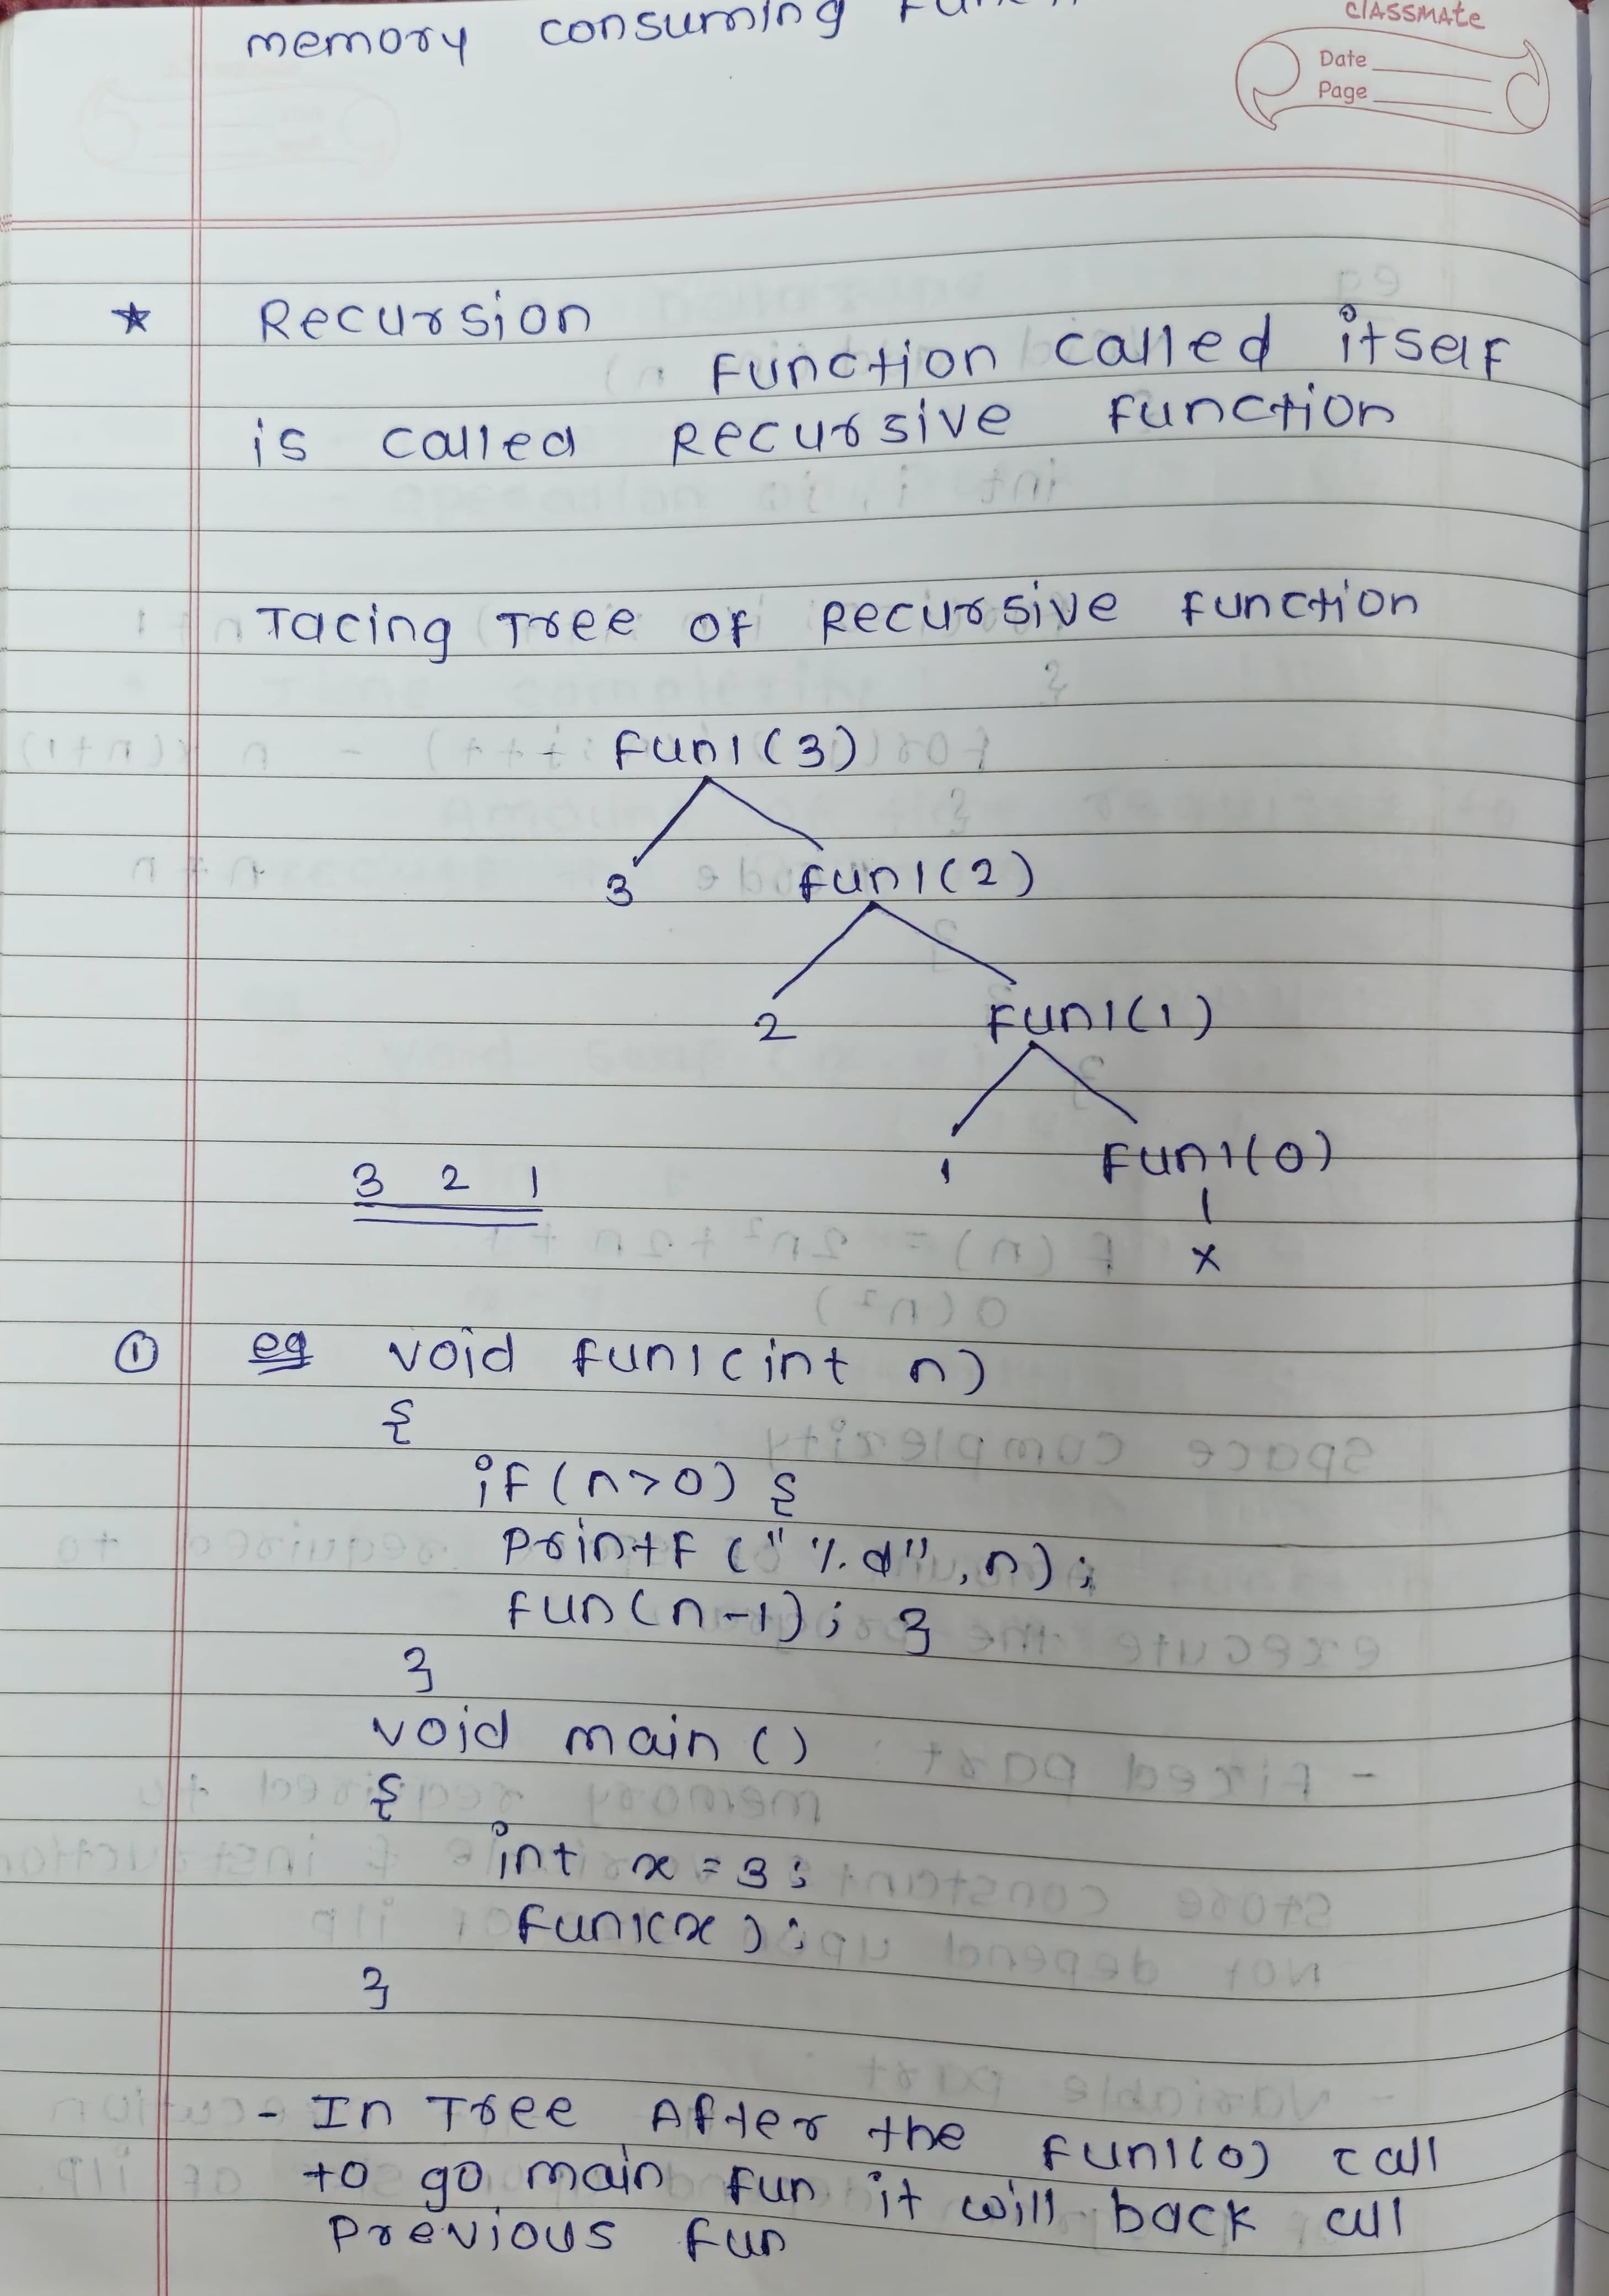 memory consuming
classmate
Date
Page
★ Recursion
Function called itself
is called Recursive function
Tacing Tree of Recursive function
fun1(3)
3 fun1(2)
2 fun1(1)
1 fun1(0)
3 2 1
x
① eg void fun1(int n)
{
if(n>0) {
printf ("%d", n);
fun(n-1); }
}
void main()
{
int x = 3;
fun1(x);
}
- In Tree After the fun1(0) call
to go main fun it will back call
previous fun